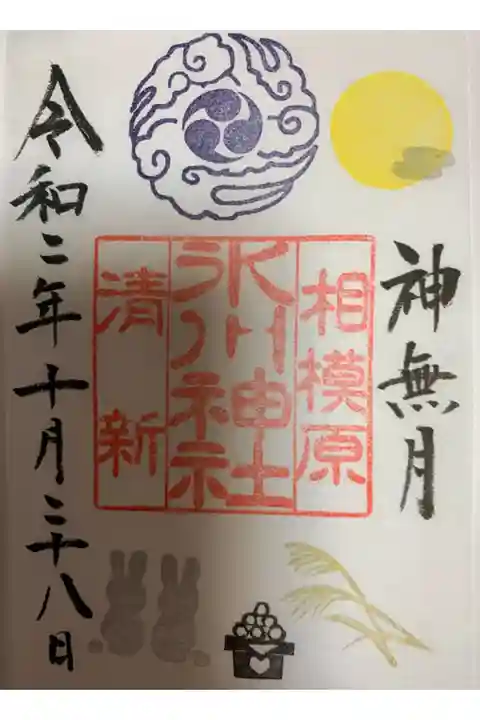 神無月
相模原
氷川神社
清新
令和二年十月二十八日